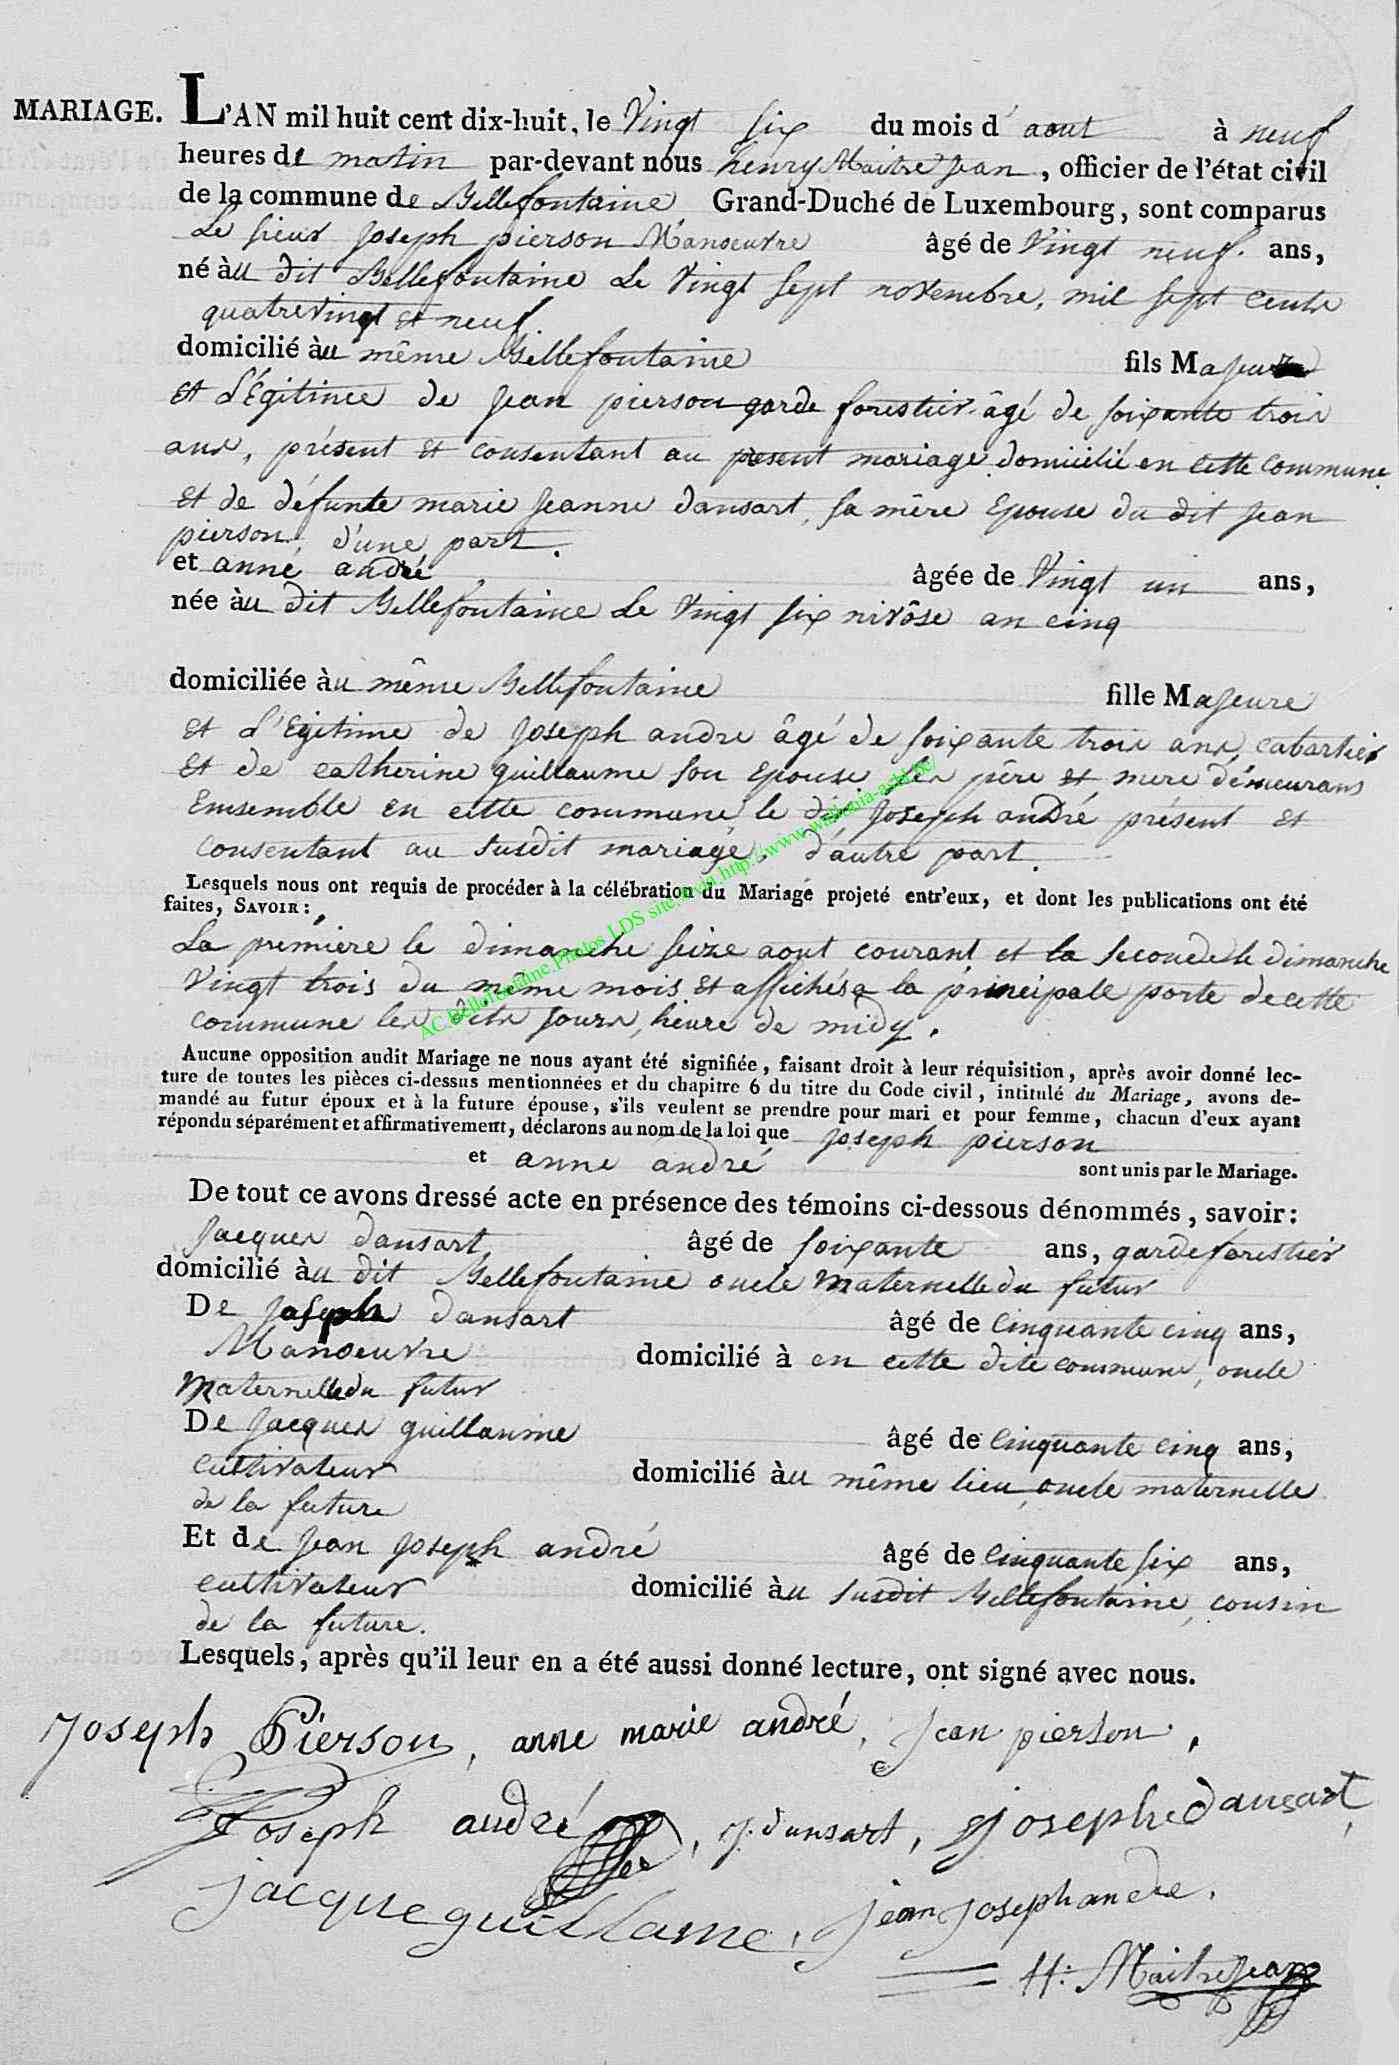 MARIAGE. L'AN mil huit cent dix-huit, le Vingt six du mois d'aout à neuf
heures de matin par-devant nous henry Maitrejean, officier de l'état civil
de la commune de Bellefontaine Grand-Duché de Luxembourg, sont comparus
Le sieur Joseph pierson Manoeuvre âgé de Vingt neuf. ans,
né àu dit Bellefontaine Le Vingt sept novembre, mil sept cents
quatrevingt et neuf
domicilié àu même Bellefontaine fils Majeur
et L'Egitime de Jean pierson garde forestier âgé de soixante trois
ans, présent et consentant au présent mariage domicilié en cette commune
et de défunte marie Jeanne dansart, sa mère Epouse du dit Jean
pierson, d'une part.
et anne andré âgée de Vingt un ans,
née àu dit Bellefontaine Le Vingt six nivôse an cinq
domiciliée àu même Bellefontaine fille Majeure
et L'Egitime de Joseph andré âgé de soixante trois ans, cabartier
et de catherine guillaume son Epouse ses père et mere démeurans
Emsemble en cette commune le dit Joseph andré présent et
consentant au susdit mariage, d'autre part.
Lesquels nous ont requis de procéder à la célébration du Mariage projeté entr'eux, et dont les publications ont été
faites, SAVOIR:
La première le dimanche seize aout courant et la seconde le dimanche
Vingt trois du même mois et affichés a la principale porte de cette
commune les dits jours, heure de midy.
Aucune opposition audit Mariage ne nous ayant été signifiée, faisant droit à leur réquisition, après avoir donné lec-
ture de toutes les pièces ci-dessus mentionnées et du chapitre 6 du titre du Code civil, intitulé du Mariage, avons de-
mandé au futur époux et à la future épouse, s'ils veulent se prendre pour mari et pour femme, chacun d'eux ayant
répondu séparément et affirmativement, déclarons au nom de la loi que Joseph pierson
et anne andré sont unis par le Mariage.
De tout ce avons dressé acte en présence des témoins ci-dessous dénommés, savoir:
Jacques dansart âgé de soixante ans, garde forestier
domicilié àu dit Bellefontaine oncle Maternelle du futur
De Joseph dansart âgé de cinquante cinq ans,
Manoeuvre domicilié à en cette dite commune, oncle
Maternelle du futur
De Jacques guillaume âgé de cinquante cinq ans,
cultivateur domicilié àu même lieu, oncle maternelle
de la future
Et de Jean Joseph andré âgé de cinquante six ans,
cultivateur domicilié àu susdit Bellefontaine, cousin
de la future.
Lesquels, après qu'il leur en a été aussi donné lecture, ont signé avec nous.
Joseph Pierson, anne marie andré, jean pierson,
Joseph andré, J: dansart, josephe dansart,
jacque guillame, jean joseph andre.
H: Maitrejean